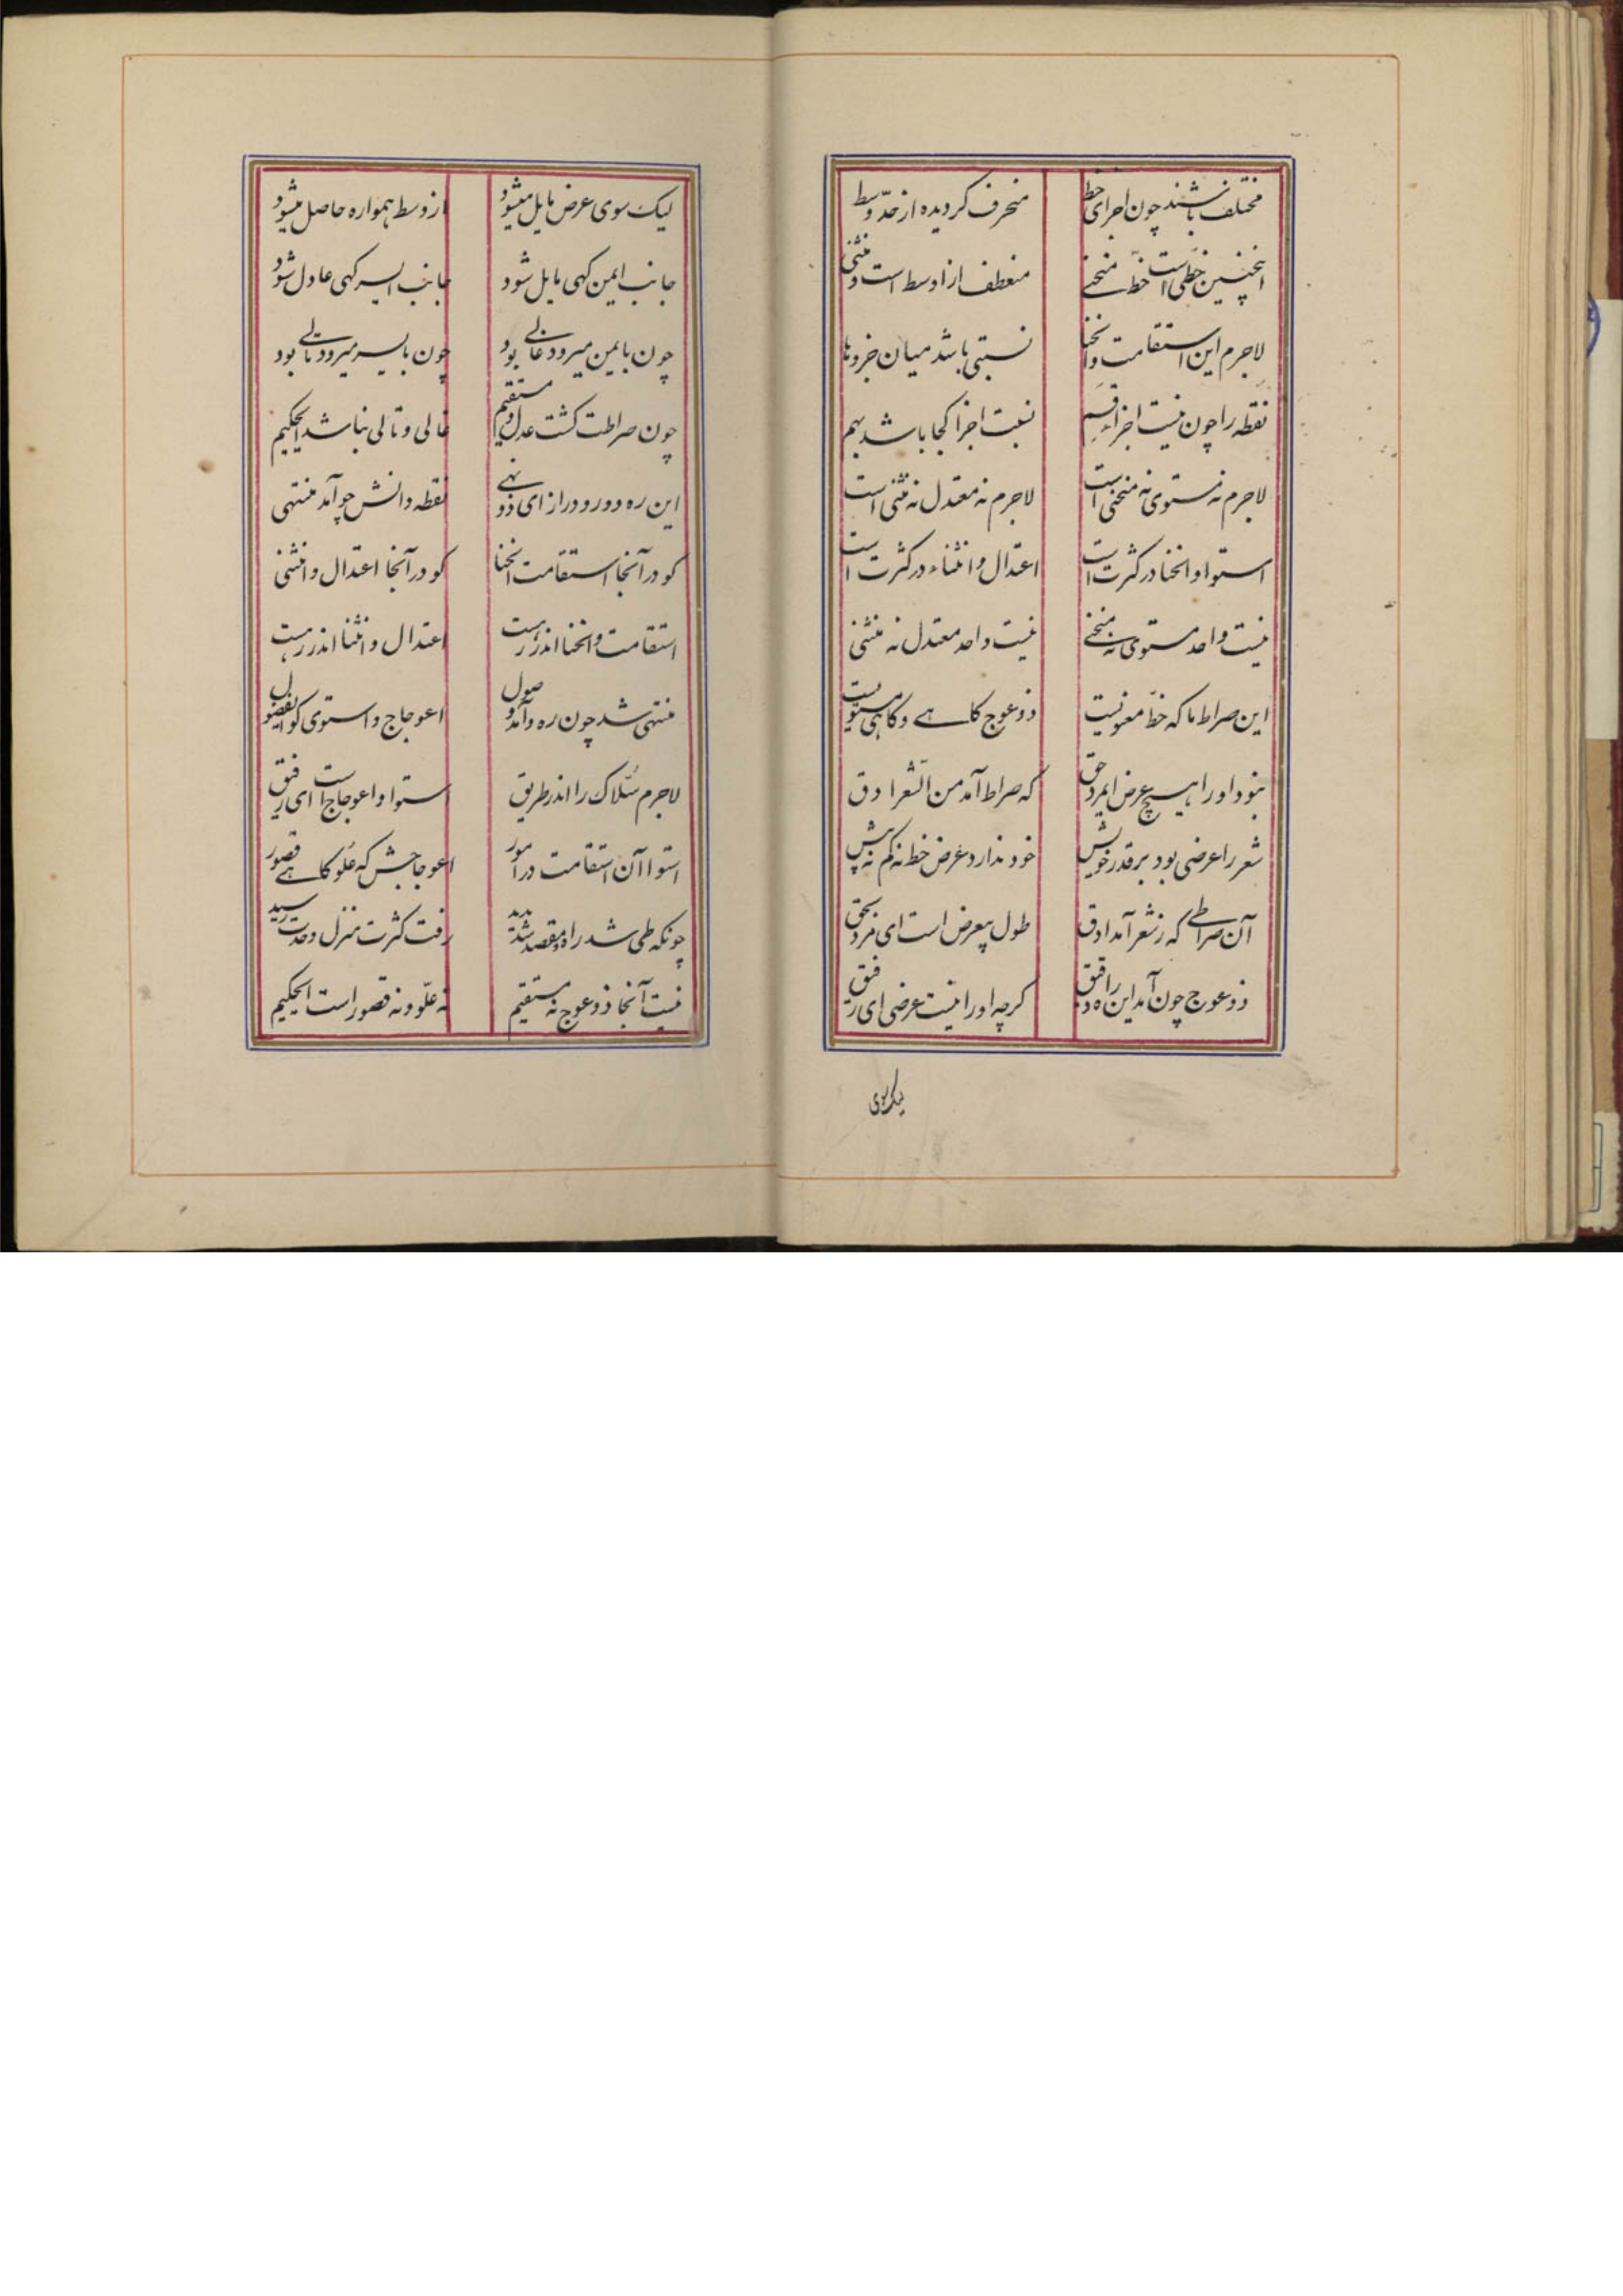 مختلف باشند چون اجزای خط
منحرف گردیده از حدّ وسط
اینچنین خطی است خطّ منحنی
منعطف از اوسط است و منثنی
لاجرم این استقامت وانحنا
نسبتی باشد میان جزوها
نقطه را چون نیست اجزاء قسم
نسبت اجزا کجا باشد بهم
لاجرم نه مستوی نه منحنی است
لاجرم نه معتدل نه منثنی است
استوا وانحنا در کثرت است
اعتدال وانثناء در کثرت است
نیست واحد مستوی نه منحنی
نیست واحد معتدل نه منثنی
این صراط ما که خطّ معنویست
ذو عوج گاهی و گاهی مستویست
نبود او را هیچ عرض ایمرد حق
که صراط آمد من الشعر ادق
شعر را عرضی بود بر قدر خویش
خود ندارد عرض خط نه کم نه بیش
آن صراطی که ز شعر آمد ادق
طول بیعرض است ای مرد بحق
ذو عوج چون آمد این ره دقیق
گرچه او را نیست عرضی ای رفیق
لیک سوی
لیک سوی عرض مایل میشود
از وسط همواره حاصل میشود
جانب ایمن گهی مایل شود
جانب ایسر گهی عادل شود
چون بایمن میرود غالی بود
چون بایسر میرود تالی بود
چون صراطت گشت عدل و مستقیم
غالی و تالی نباشد ایحکیم
این ره دور و دراز ای ذو نهی
نقطه دانش چو آمد منتهی
کو در آنجا استقامت انحنا
کو در آنجا اعتدال و انثنی
استقامت وانحنا اندر رهست
اعتدال و انثنا اندر رهست
منتهی شد چون ره و آمد وصول
اعوجاج و استوی کو ایفضول
لاجرم سُلّاک را اندر طریق
استوا و اعوجاج است ای رفیق
استوا آن استقامت در امور
اعوجاجش گه غلو گاهی قصور
چونکه طی شد راه و مقصد شد پدید
رفت کثرت منزل وحدت رسید
نیست آنجا ذو عوج نه مستقیم
نه غلّو و نه قصور است ایحکیم